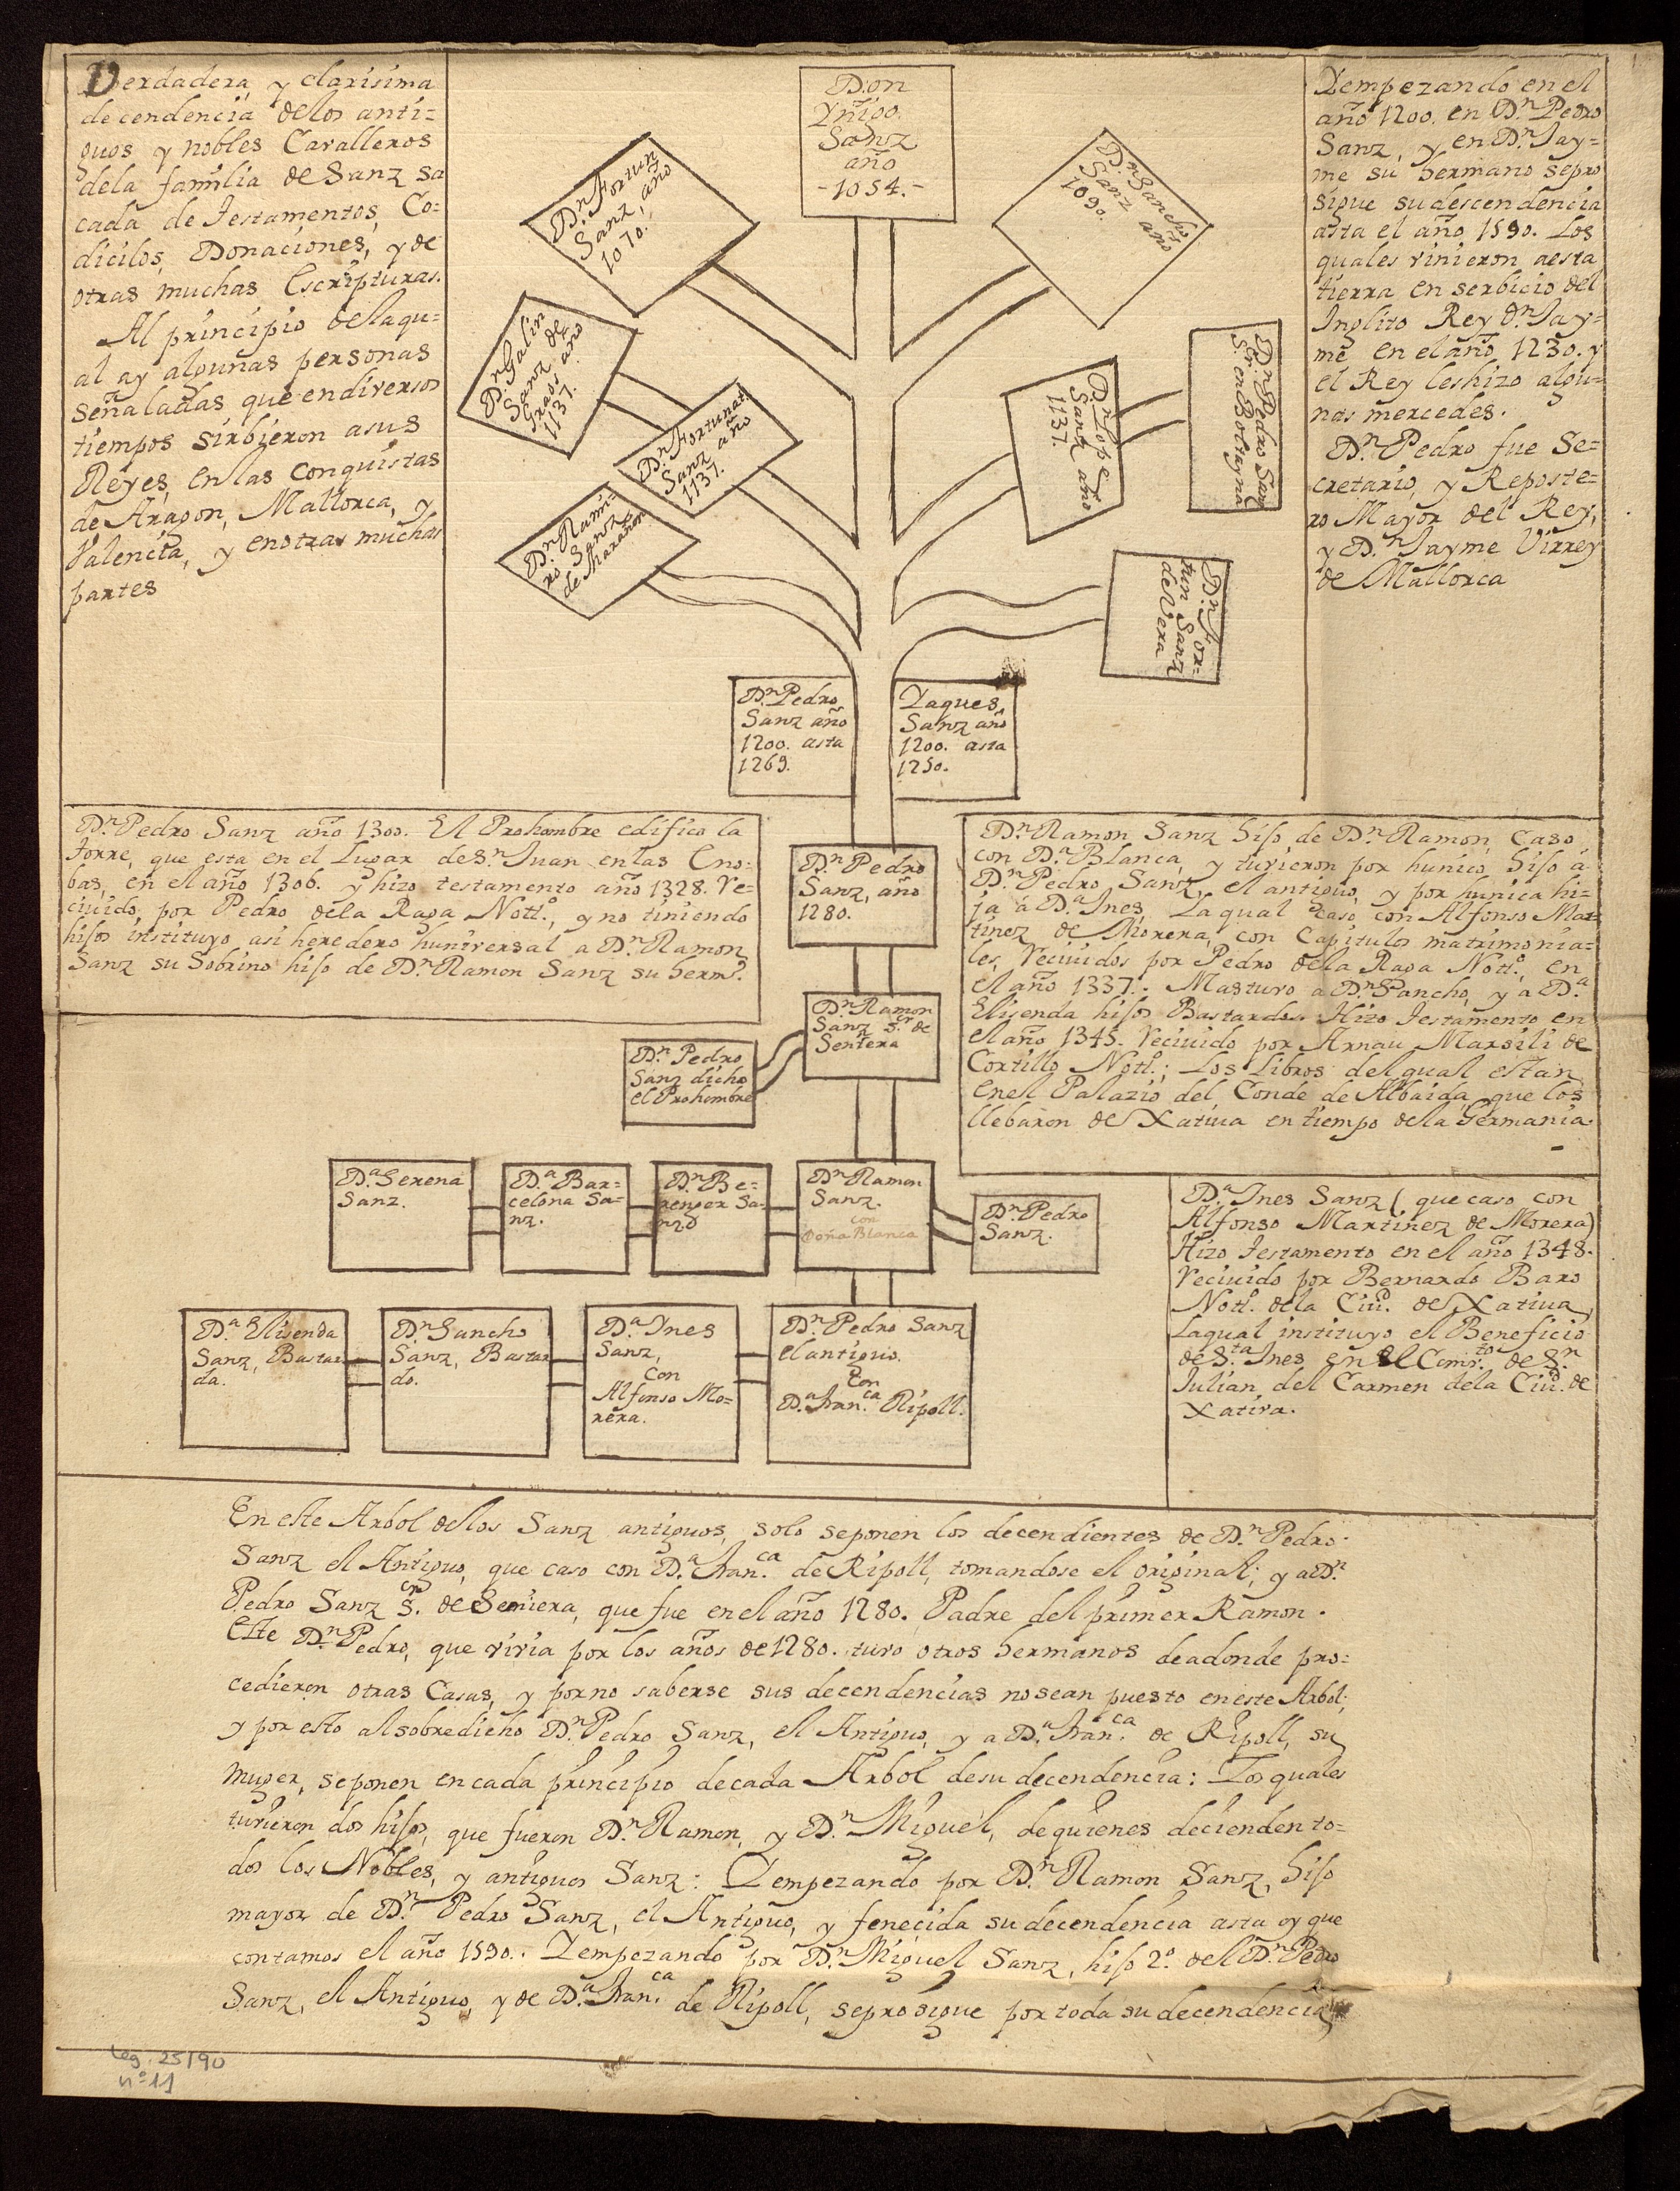 Verdadera, y clarisima
decendencia delos anti=
guos y nobles Cavalleros
dela familia de Sanz sa
cada de Testamentos, Co=
dicilos, Donaciones, y de
otras muchas Escripturas.
Al principio delaqu=
al ay algunas personas
señaladas, que endiversos
tiempos sirbieron asus
Reyes, en las conquistas
de Aragon, Mallorca, y
Valencia, y enotras muchas
partes
Don
Yñigo
Sanz
año
-1054.-
Dn. Fortun
Sanz, año
1070.
Dn. Sancho
Sanz año
1090.
Dn. Galin
Sanz de
Graos año
1137.
Dn. Fortunat.
Sanz año
1137.
Dn. Rami=
ro Sanz
de Marañon
Dn. Lope
Sanz año
1137.
Dn. Pedro Sanz
Sr. en Boltayna
Dn. For=
tun Sanz
de Vera
Dn. Pedro
Sanz año
1200. asta
1269.
Yaques,
Sanz año
1200. asta
1250.
Yempezando en el
año 1200. en Dn. Pedro
Sanz, y en Dn. Jay=
me su hermano sepro
sigue sudescendencia
asta el año 1590. Los
quales vinieron aesta
tierra en serbicio del
Inglito Rey Dn. Jay=
me en el año 1230. y
el Rey leshizo algu=
nas mercedes.
Dn. Pedro fue Se=
cretario, y Reposte=
ro Mayor del Rey,
y Dn. Jayme Virrey
de Mallorca
Dn. Pedro Sanz año 1300. El Prohombre edifico la
Torre, que esta en el Lugar de Sn. Juan en las Eno=
bas, en el año 1306. y hizo testamento año 1328. Re=
civido, por Pedro dela Raga Nott.o, y no tiniendo
hijos instituyo asi heredero huniversal a Dn. Ramon
Sanz su Sobrino hijo de Dn. Ramon Sanz su herm.o
Dn. Pedro
Sanz, año
1280.
Dn. Ramon
Sanz Sr. de
Sentera
Dn. Pedro
Sanz dicho
el Prohombre
Dn. Ramon Sanz hijo de Dn. Ramon, Caso
con Da. Blanca, y tuvieron por hunico hijo á
Dn. Pedro Sanz, el antiguo, y por hunica hi=
ja á Da. Ines, Laqual caso con Alfonso Mar=
tinez de Morera, con Capitulos matrimonia=
les, Recividos por Pedro dela Raga Nott.o, en
el año 1337. Mastuvo a Dn. Sancho, y a Da.
Elisenda hijos Bastardos. Hizo Testamento en
el año 1345. Recivido por Arnau Marsili de
Cortillo Nott.; Los Libros del qual estan
enel Palazio del Conde de Albaida, que los
llebaron de Xativa en tiempo dela Germania.
Da. Serena
Sanz.
Da. Bar=
celona Sa=
nz.
Dn. Be=
renger Sa=
nz
Dn. Ramon
Sanz.
con
Doña Blanca
Dn. Pedro
Sanz.
Da. Elisenda
Sanz, Bastar
da.
Dn. Sancho
Sanz, Bastar
do.
Da. Ines
Sanz,
Con
Alfonso Mo=
rera.
Dn. Pedro Sanz
el antiguo.
Con
Da. Fran.ca Ripoll.
Da. Ines Sanz (que caso con
Alfonso Martinez de Morera)
Hizo Testamento en el año 1348.
Recivido por Bernardo Baro
Nott. dela Ciud. de Xativa,
Laqual instituyo el Beneficio
de Sta. Ines en el Comv.to de Sn.
Julian del Carmen dela Ciud. de
Xativa.
En este Arbol delos Sanz antiguos, solo seponen los decendientes de Dn. Pedro
Sanz el Antiguo, que caso con Da. Fran.ca de Ripoll, tomandose el original; y a Dn.
Pedro Sanz Sr. de Sentera, que fue en el año 1280. Padre del primer Ramon.
Este Dn. Pedro, que vivia por los años de 1280. tuvo otros hermanos deadonde pro=
cedieron otras Casas, y porno saberse sus decendencias nosean puesto eneste Arbol;
y por esto alsobredicho Dn. Pedro Sanz, el Antiguo, y a Da. Fran.ca de Ripoll, su
muger, seponen encada principio decada Arbol desu decendencia: Los quales
tuvieron dos hijos, que fueron Dn. Ramon, y Dn. Miguel, dequienes decienden to=
dos los Nobles, y antiguos Sanz: Yempezando por Dn. Ramon Sanz, hijo
mayor de Dn. Pedro Sanz, el Antiguo, y fenecida su decendencia asta oy que
contamos el año 1590. Yempezando por Dn. Miguel Sanz, hijo 2o. del Dn. Pedro
Sanz, el Antiguo, y de Da. Fran.ca de Ripoll, seprosigue portoda sudecendencia
Leg. 25/90
nº 11